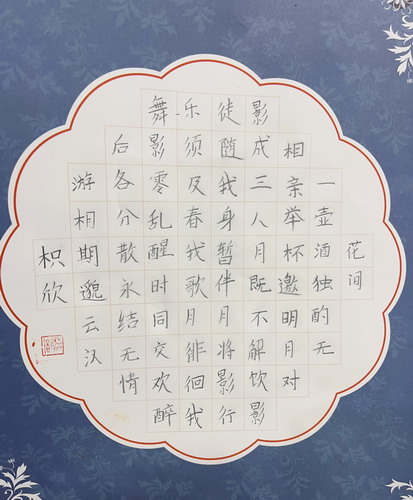 花间
一壶酒独酌无
相亲举杯邀明月对
影成三人月既不解饮影
徒随我身暂伴月将影行
乐须及春我歌月徘徊我
舞影零乱醒时同交欢醉
后各分散永结无情
游相期邈云汉
枳欣